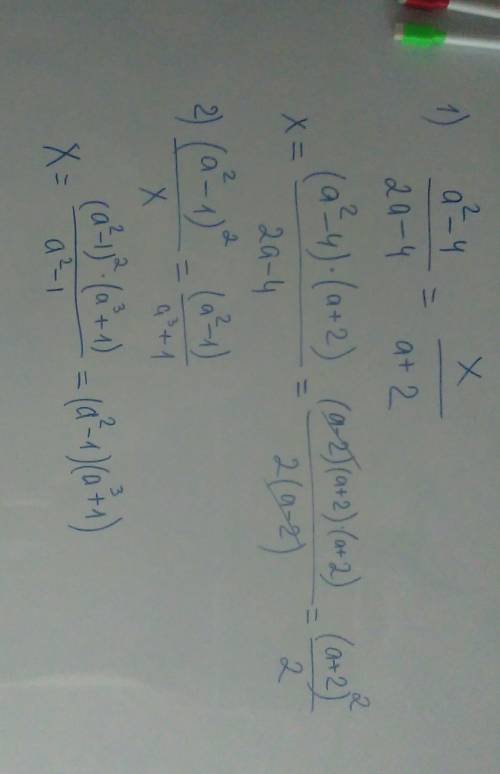 1) (a²-4)/(2a-4) = x/(a+2)
x = ((a²-4)·(a+2))/(2a-4) = ((a-2)(a+2)·(a+2))/(2(a-2)) = (a+2)²/2
2) (a²-1)²/x = (a²-1)/(a³+1)
x = ((a²-1)²·(a³+1))/(a²-1) = (a²-1)(a³+1)